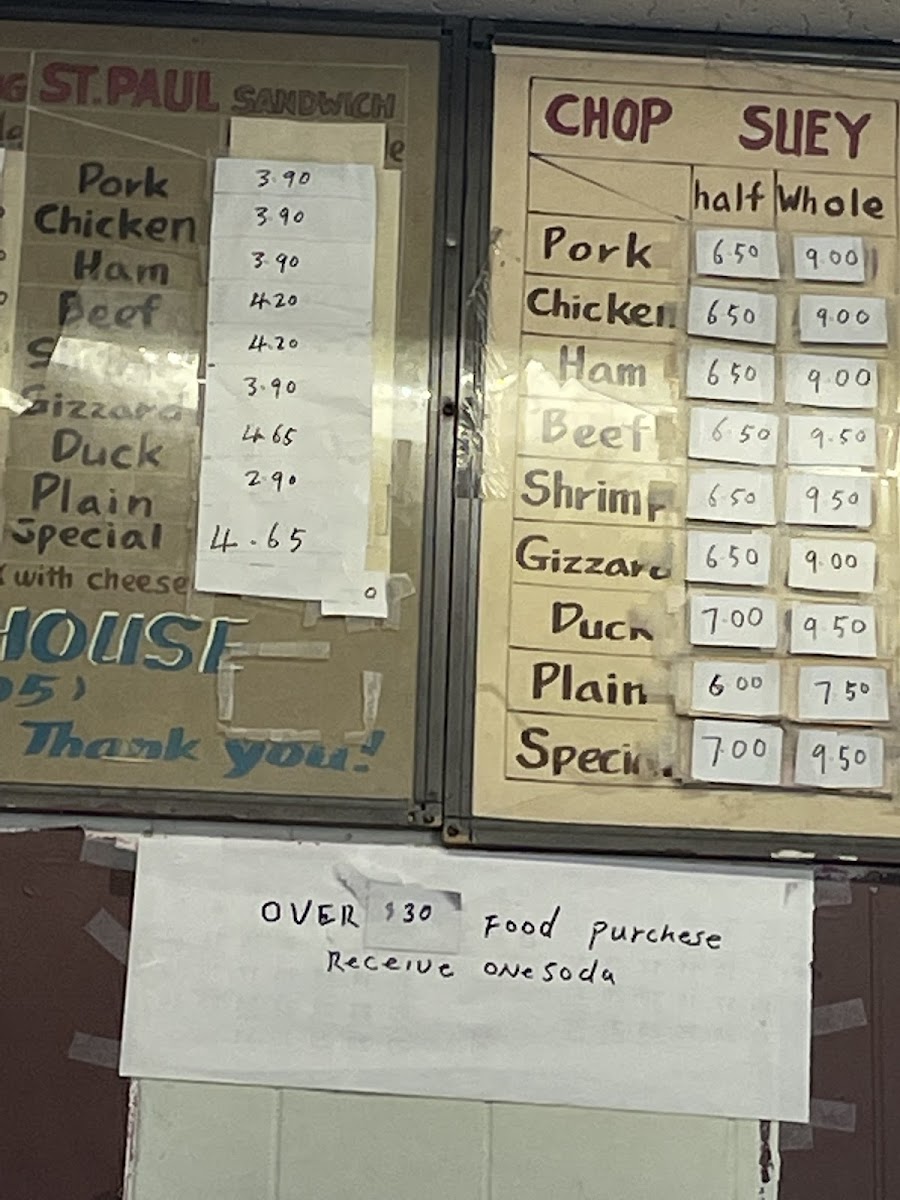 G ST. PAUL SANDWICH
e
Pork 3.90
Chicken 3.90
Ham 3.90
Beef 4.20
S 4.20
Gizzard 3.90
Duck 4.65
Plain 2.90
Special 4.65
with cheese 0
HOUSE
05)
Thank you!
CHOP SUEY
half Whole
Pork 6.50 9.00
Chicken 6.50 9.00
Ham 6.50 9.00
Beef 6.50 9.50
Shrimp 6.50 9.50
Gizzard 6.50 9.00
Duck 7.00 9.50
Plain 6.00 7.50
Speci 7.00 9.50
OVER $30 Food purchese
Receive one soda